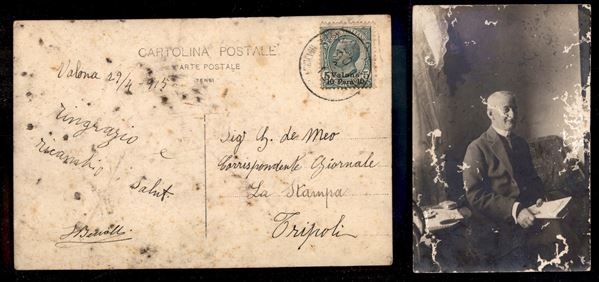 CARTOLINA POSTALE
CARTE POSTALE
Valona 29/4 915
ringrazio e
ricambio
saluti
Sig G. de Meo
Corrispondente Giornale
La Stampa
Tripoli
5 Valona 5
10 Para 10